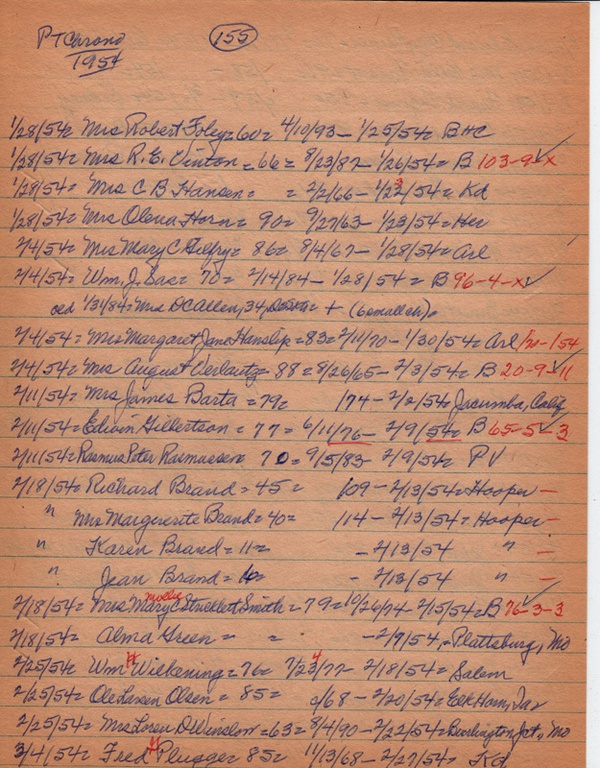 PT Chrono 155
1954
1/28/54= Mrs Robert Foley=60= 4/10/93- 1/25/54= B HC
1/28/54= Mrs R. E. Vinton = 66= 8/23/87- 1/26/54= B 103-9-x
1/28/54= Mrs C B Hansen= = 2/2/66- 1/22/54= Kd
1/28/54= Mrs Olena Horn= 90= 9/27/63- 1/23/54= Her
2/4/54= Mrs Mary C Gelfry= 86= 8/4/67- 1/28/54= Arl
2/4/54= Wm. J. Sas= 70= 2/14/84- 1/28/54= B 96-4-x
1/31/84= Mrs D C Allen, 34, + (6 small ch)=
2/4/54= Mrs Margaret Jane Hanslip=83= 2/11/70- 1/30/54= Arl 1/20-154
2/4/54= Mrs August = 88= 8/26/65- 2/3/54= B 20-9-11
2/11/54= Mrs James Barta= 79= /74- 2/2/54= Jacumba, Calif
2/11/54= Edwin Gilbertson= 77= 6/11/76- 2/9/54= B 65-5-3
2/11/54= Rasmus Peter Rasmussen 70= 9/5/83- 2/9/54= PV
2/18/54= Richard Brand= 45= /09- 2/13/54= Hooper -
" Mrs Margererite Brand= 40= /14- 2/13/54= Hooper -
" Karen Brand= 11= - 2/13/54 " -
" Jean Brand= - 2/13/54 " -
2/18/54= Mrs Mary C Stricklett Smith= 79= 10/26/74- 2/15/54= B 76-3-3
2/18/54= Alma Green= = -2/9/54,= Plattsburg, Mo
2/25/54= Wm H Wilkening= 76= 7/23/77- 2/18/54= Salem
2/25/54= Ole Larsen Olsen= 85= /68- 2/20/54= Elk Horn,
2/25/54= Mrs Loren D Winslow=63= 8/4/90- 2/22/54= Burlington Jct., Mo
3/4/54= Fred H Plugge= 85= 11/13/68- 2/27/54= Kd